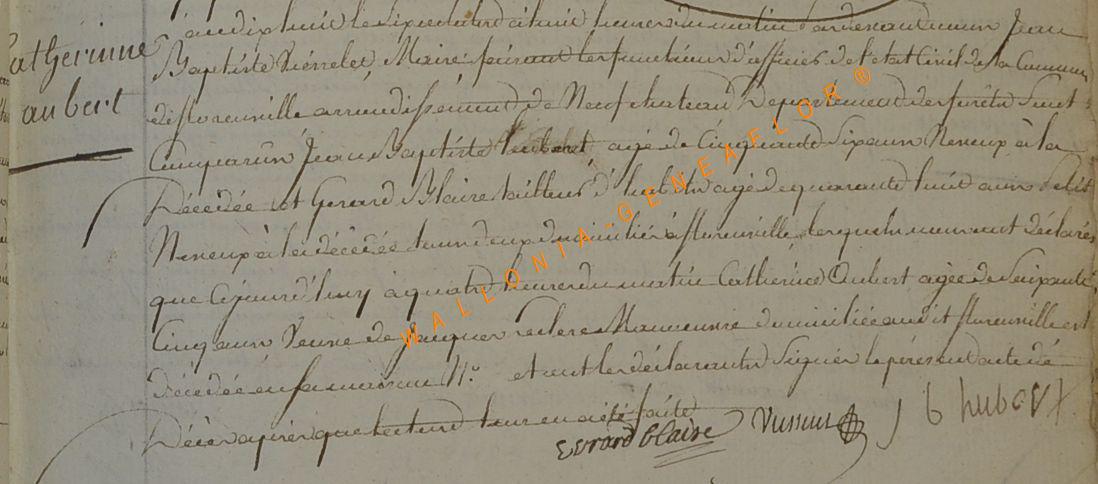 Catherinne
aubert
an dix huit le six octobre à huit heures du matin pardevant nous Jean
Baptiste Maire faisant les fonctions d'officier de l'etat Civil de la Commune
de florenville arrondissement de Neufchateau Departement des forêts Sont
Comparûs Jean Baptiste hubert agé de Cinquante Six ans Neveux à la
Décédée et Gerard Blaise tailleur d'habits agé de quarante huit ans petit
Neveux à la décédée tous deux domiciliés à florenville lesquels nous ont déclarés
que Cejourd'huy à quatre heures du matin Catherine Aubert agée de Soixante
Cinq ans Veuve de Jacques domiciliée audit florenville est
décédée en sa maison N.o et ont les déclarants Signés le présent acte de
Décès après que lecture leur en a été faite
Evrard blaise
J b hubert
WALLONIA-GENEAFLOR®